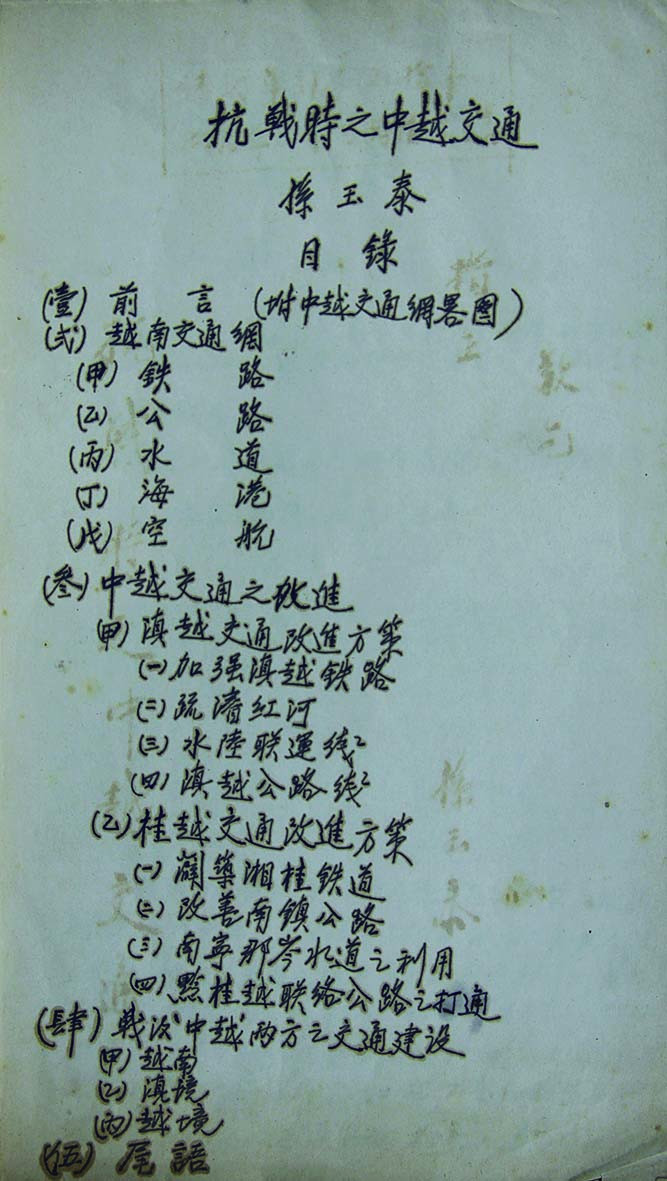 抗戰時之中越交通
孫玉泰
目錄
(壹) 前言 (坿中越交通網畧圖)
(弍) 越南交通網
(甲) 鉄路
(乙) 公路
(丙) 水道
(丁) 海港
(戊) 空航
(叄) 中越交通之改進
(甲) 滇越交通改進方策
(一) 加强滇越鉄路
(二) 疏濬紅河
(三) 水陸联運线
(四) 滇越公路线
(乙) 桂越交通改進方策
(一) 闢築湘桂鉄道
(二) 改善南鎮公路
(三) 南寧那岑水道之利用
(四) 黔桂越联络公路之打通
(肆) 戰後中越両方之交通建設
(甲) 越南
(乙) 滇境
(丙) 越境
(伍) 尾語